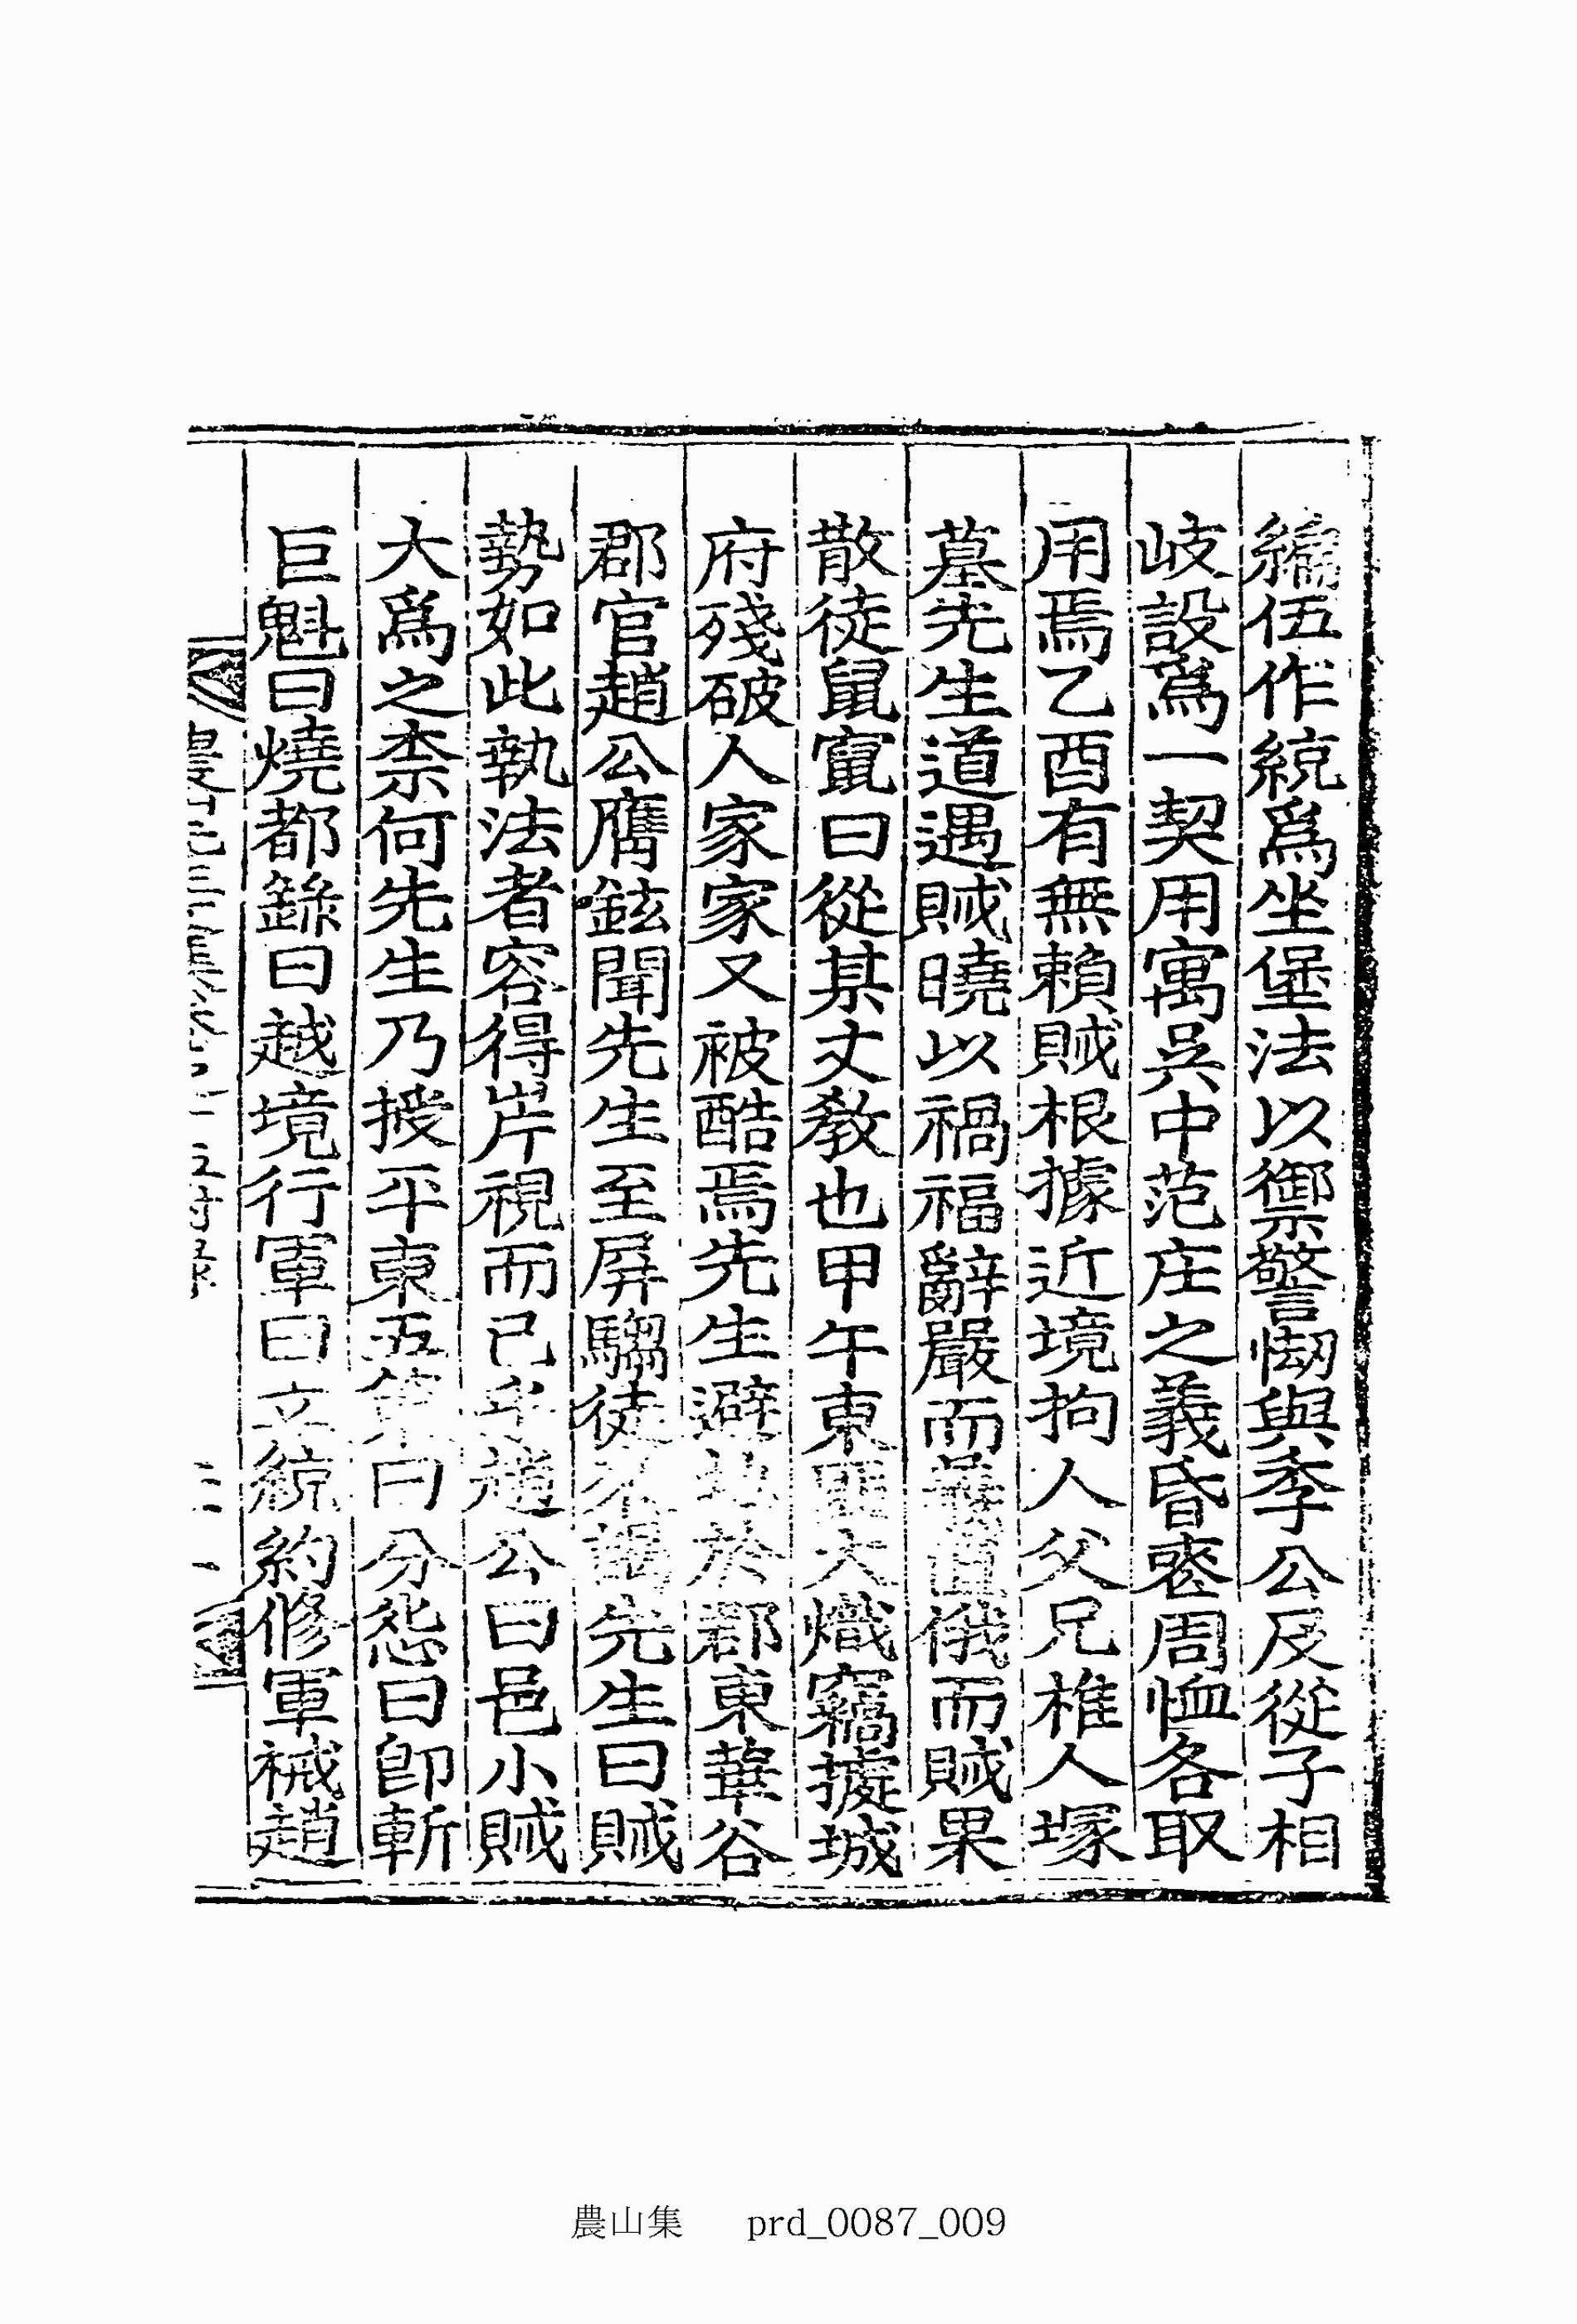 編伍作統爲坐堡法以禦警㥘與季公及從子相
岐設爲一契用寓呉中范庄之義昏喪周恤各取
用焉乙酉有無賴賊根據近境拘人父兄椎人塚
墓先生道遇賊曉以禍福辭嚴而義直俄而賊果
散徒鼠竄曰從某丈敎也甲午東匪大熾竊據城
府殘破人家家又被酷焉先生避地於郡東華谷
郡官趙公膺鉉聞先生至屛騶徒來謁先生曰賊
勢如此執法者容得岸視而已乎趙公曰邑小賊
大爲之柰何先生乃授平東五策曰分怨曰卽斬
巨魁曰燒都錄曰越境行軍曰立綜約修軍械趙
農山先生集卷之十五附錄
農山集 prd_0087_009